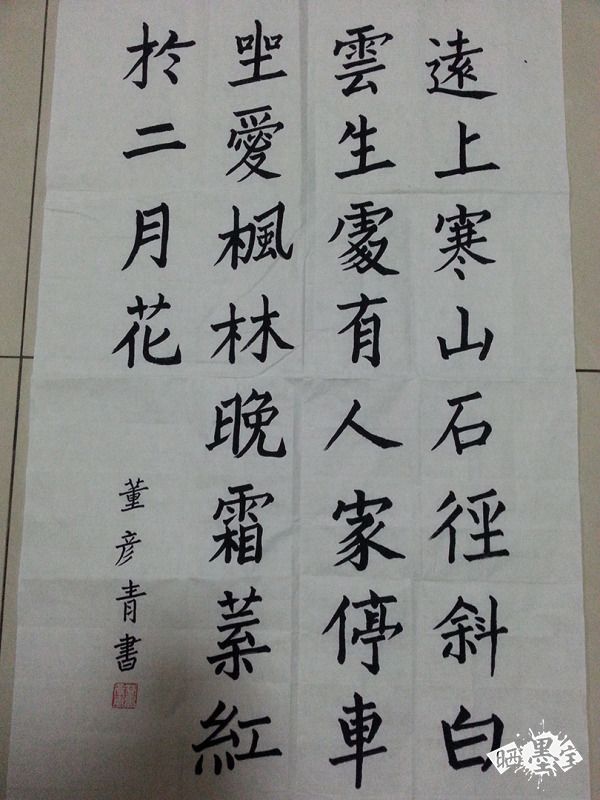 遠上寒山石徑斜白
雲生處有人家停車
坐愛楓林晚霜葉紅
於二月花
董彦青書
晒墨宝